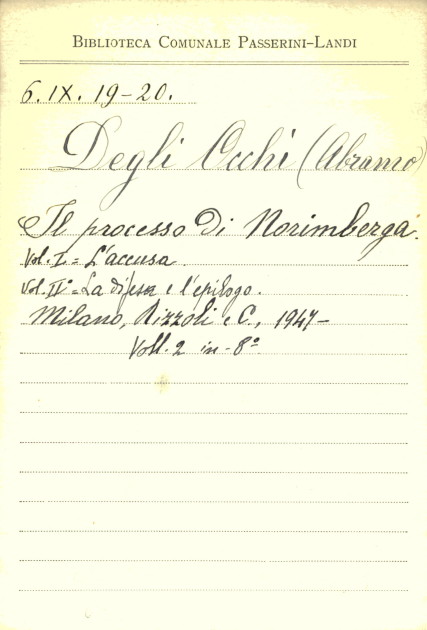 BIBLIOTECA COMUNALE PASSERINI-LANDI
6. IX. 19-20.
Degli Occhi (Abramo)
Il processo di Norimberga.
Vol. I = L'accusa.
Vol. II° = La difesa e l'epilogo.
Milano, Rizzoli e C., 1947-
Voll. 2 in-8°.